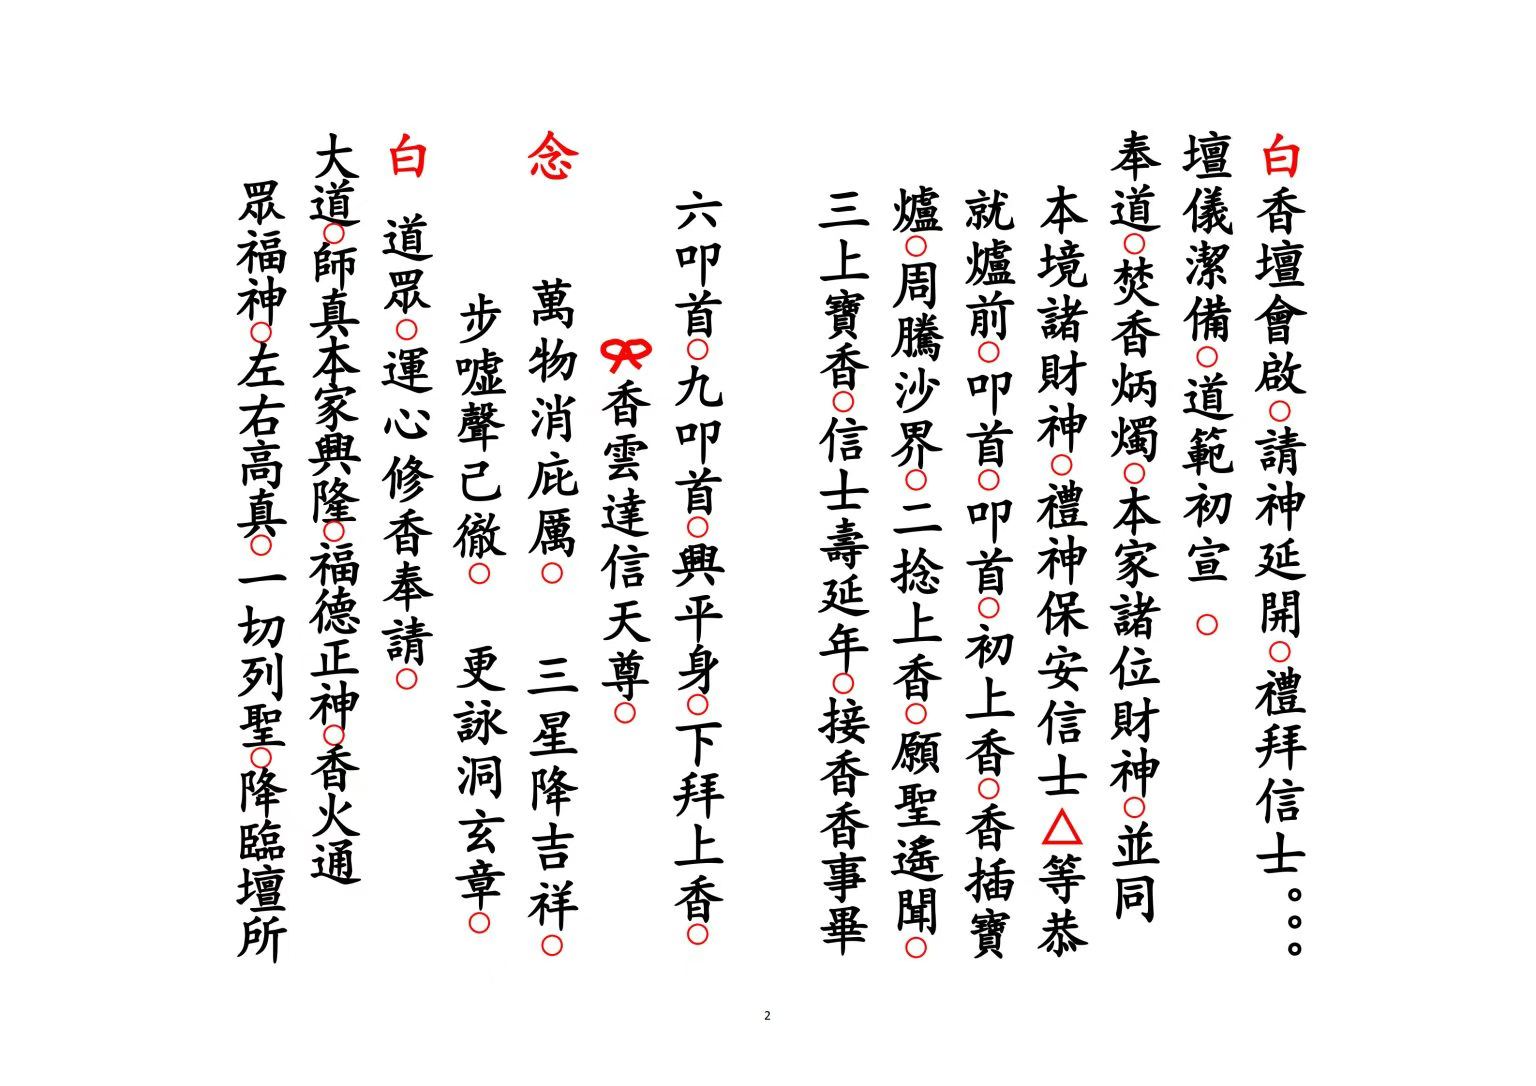 白香壇會啟○請神延開○禮拜信士。。。
壇儀潔備○道範初宣○
奉道○焚香炳燭○本家諸位財神○並同
本境諸財神○禮神保安信士△等恭
就爐前○叩首○叩首○初上香○香插寶
爐○周騰沙界○二捻上香○願聖遙聞○
三上寶香○信士壽延年○接香香事畢
六叩首○九叩首○興平身○下拜上香○
香雲達信天尊○
念 萬物消庇厲○ 三星降吉祥○
步噓聲己徹○ 更詠洞玄章○
白 道眾○運心修香奉請○
大道○師真本家興隆○福德正神○香火通
眾福神○左右高真○一切列聖○降臨壇所
2